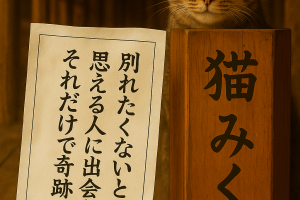 別れたくないと
思える人に出会
それだけで奇跡
猫みく